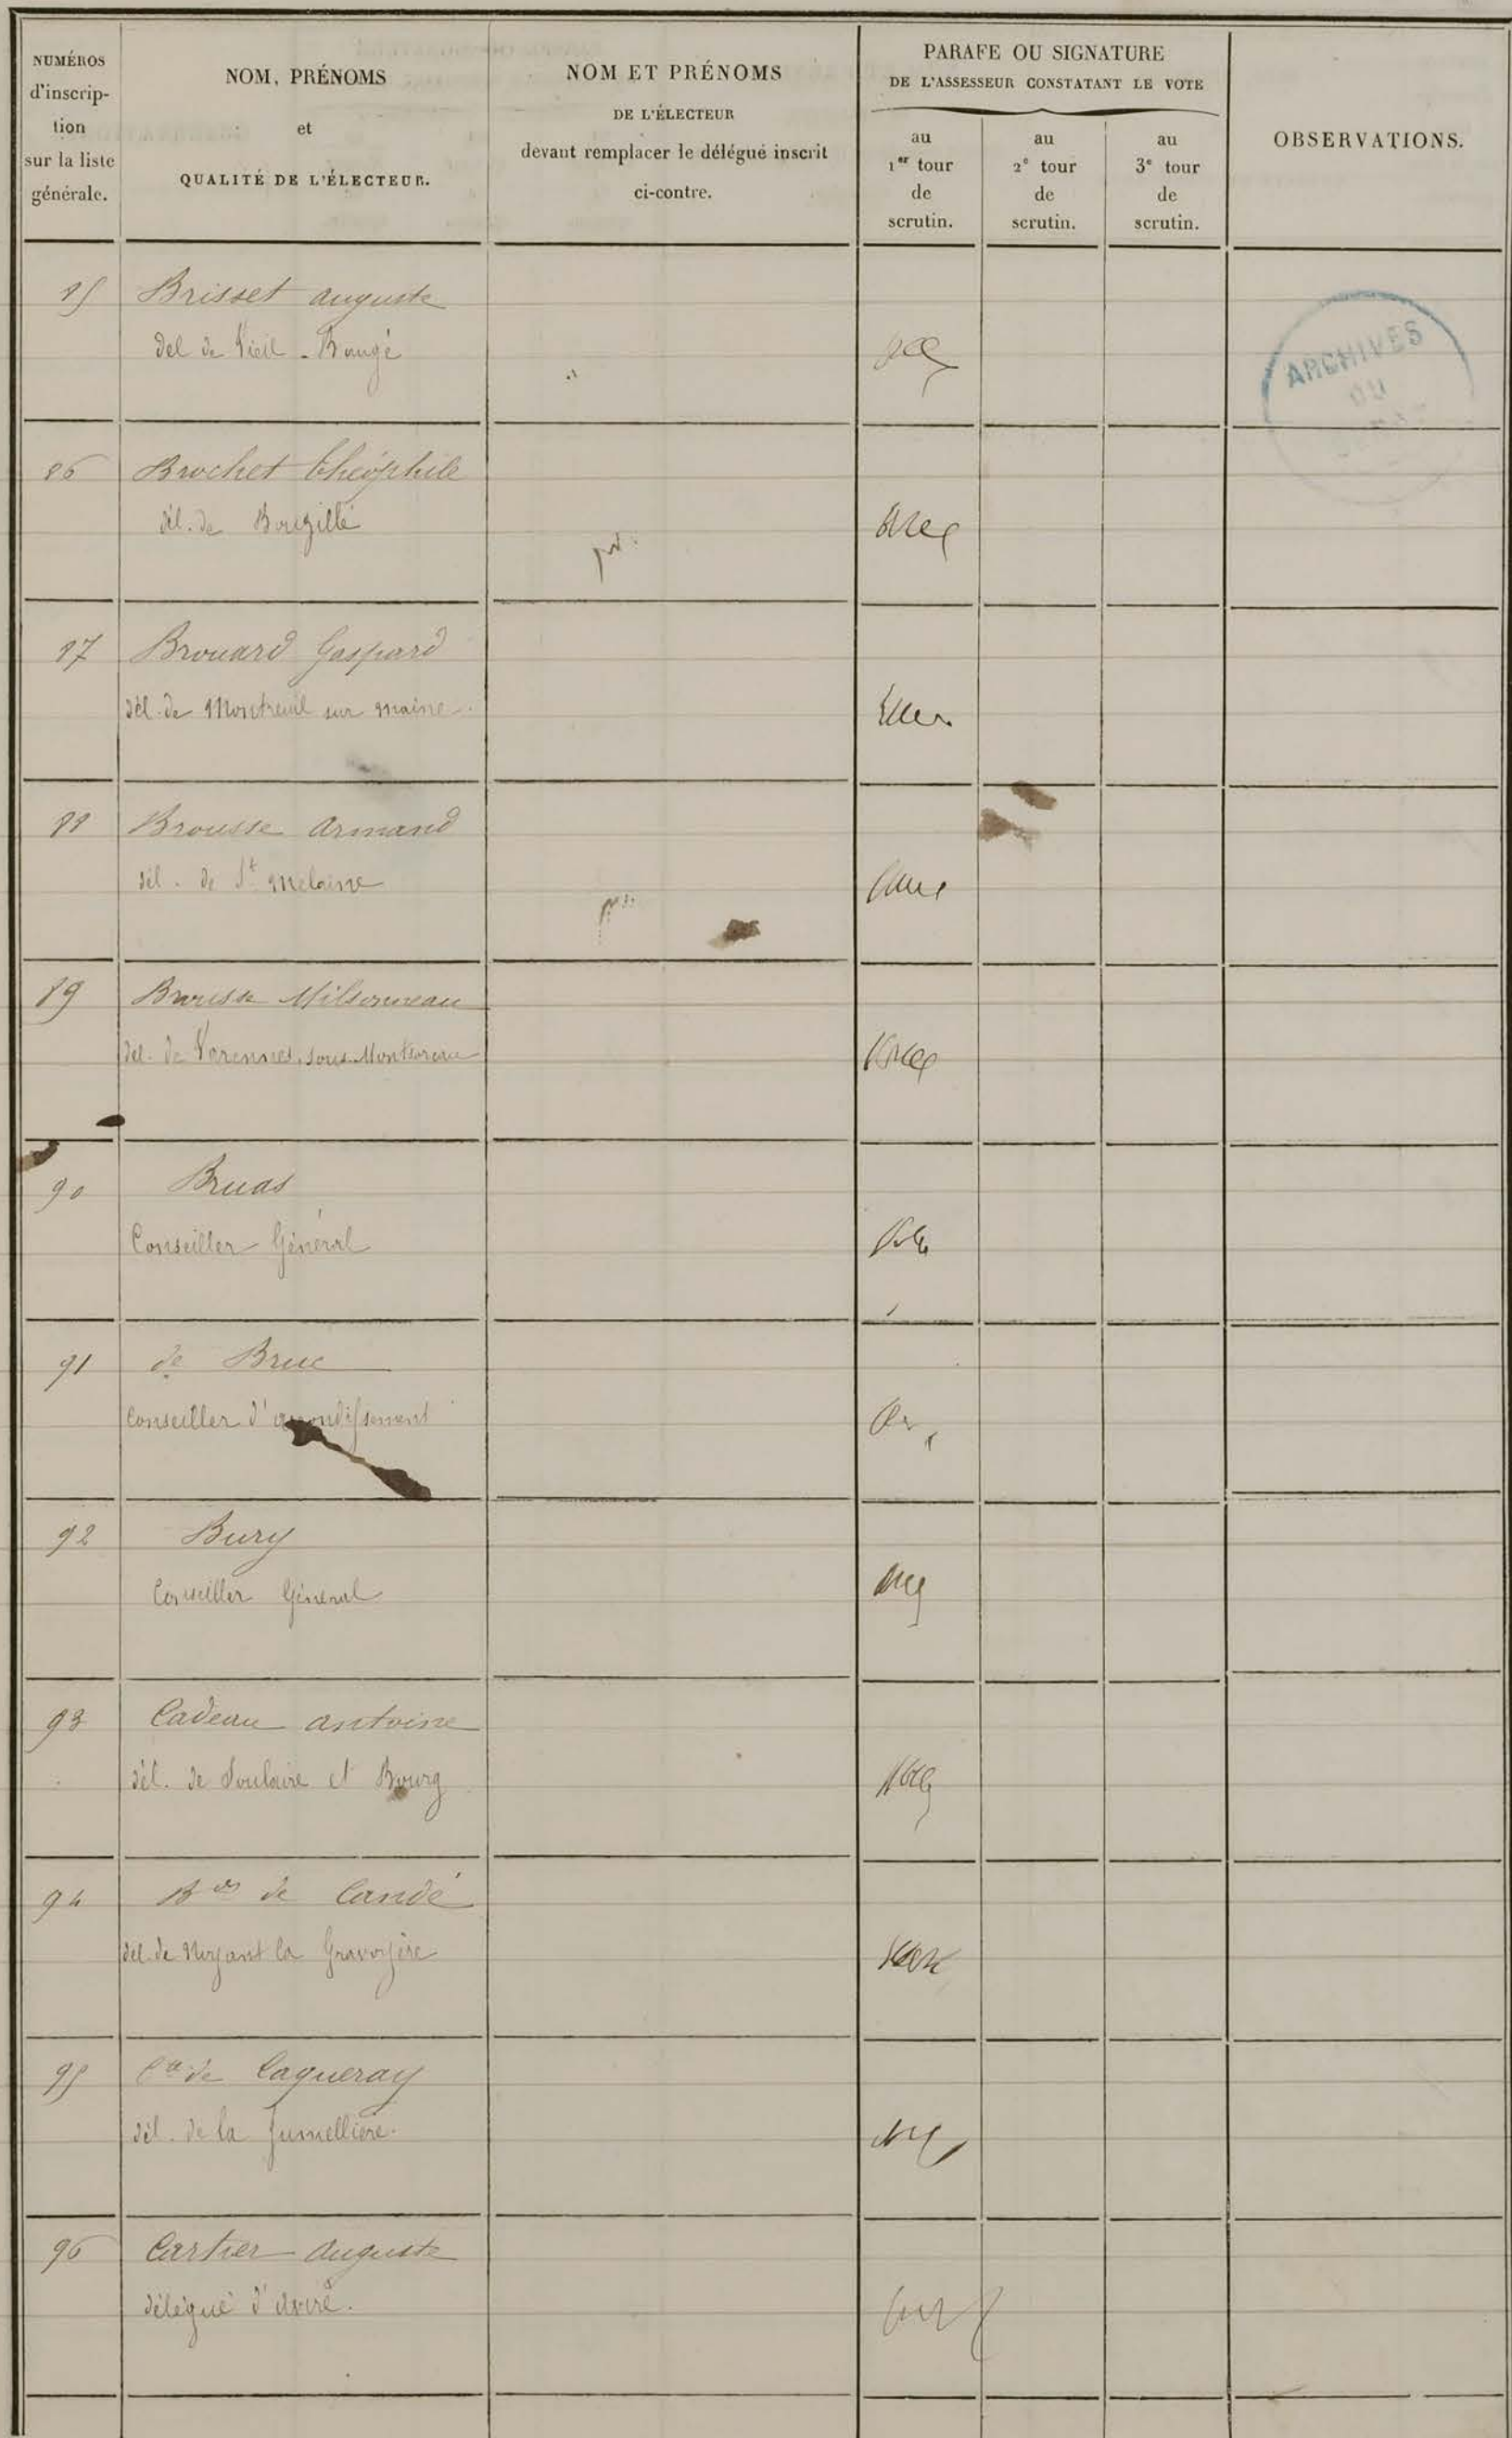 NUMÉROS
d'inscrip-
tion
sur la liste
générale.
NOM, PRÉNOMS
et
QUALITÉ DE L'ÉLECTEUR.
NOM ET PRÉNOMS
DE L'ÉLECTEUR
devant remplacer le délégué inscrit
ci-contre.
PARAFE OU SIGNATURE
DE L'ASSESSEUR CONSTATANT LE VOTE
au
1er tour
de
scrutin.
au
2e tour
de
scrutin.
au
3e tour
de
scrutin.
OBSERVATIONS.
85 Brisset auguste
del de Vieil-Baugé
ARCHIVES
DU
86 Brochet théophile
dél. de Bouzillé
87 Brouard Gaspard
dél. de Montreuil sur maine.
88 Brousse armand
dél. de St Melaine
89 Milsonneau
del. de Varennes sous Montsoreau
90 Bruas
Conseiller Général
91 de Bruc
Conseiller d'arrondissement
92 Bury
Conseiller Général
93 Cadeau antoine
dél. de Soulaire et Bourg
94 Bon de Candé
del. de Noyant la Gravoyère
95 Cte de Caqueray
dél. de la Jumellière.
96 Cartier auguste
délégué d'Aviré.